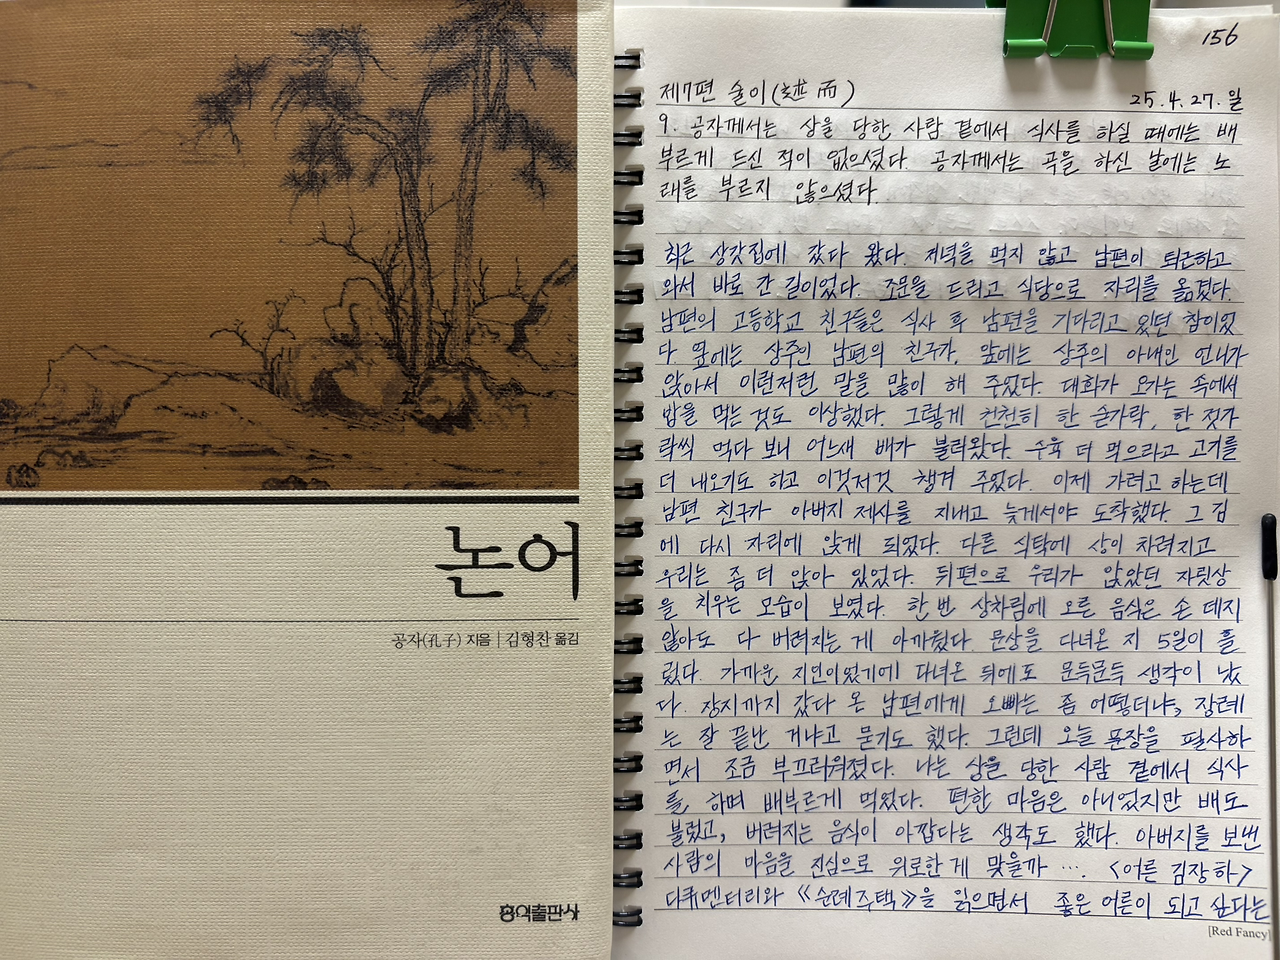 논어
공자(孔子) 지음 | 김형찬 옮김
홍익출판사
156
제7편 술이(述而)
25.4.27.일
9. 공자께서는 상을 당한 사람 곁에서 식사를 하실 때에는 배
부르게 드신 적이 없으셨다. 공자께서는 곡을 하신 날에는 노
래를 부르지 않으셨다.
최근 상갓집에 갔다 왔다. 저녁을 먹지 않고 남편이 퇴근하고
와서 바로 간 길이었다. 조문을 드리고 식당으로 자리를 옮겼다.
남편의 고등학교 친구들은 식사 후 남편을 기다리고 있던 참이었
다. 옆에는 상주인 남편의 친구가, 앞에는 상주의 아내인 언니가
앉아서 이런저런 말을 많이 해 주었다. 대화가 오가는 속에서
밥을 먹는 것도 이상했다. 그렇게 천천히 한 숟가락, 한 젓가
락씩 먹다 보니 어느새 배가 불러왔다. 수육 더 먹으라고 고기를
더 내오기도 하고 이것저것 챙겨 주었다. 이제 가려고 하는데
남편 친구가 아버지 제사를 지내고 늦게서야 도착했다. 그 김
에 다시 자리에 앉게 되었다. 다른 식탁에 상이 차려지고
우리는 좀 더 앉아 있었다. 뒤편으로 우리가 앉았던 자릿상
을 치우는 모습이 보였다. 한 번 상차림에 오른 음식은 손 데지
않아도 다 버려지는 게 아까웠다. 문상을 다녀온 지 5일이 흘
렀다. 가까운 지인이었기에 다녀온 뒤에도 문득문득 생각이 났
다. 장지까지 갔다 온 남편에게 오빠는 좀 어떻더냐, 장례
는 잘 끝난 거냐고 묻기도 했다. 그런데 오늘 문장을 필사하
면서 조금 부끄러워졌다. 나는 상을 당한 사람 곁에서 식사
를 하며 배부르게 먹었다. 편한 마음은 아니었지만 배도
불렀고, 버려지는 음식이 아깝다는 생각도 했다. 아버지를 보낸
사람의 마음을 진심으로 위로한 게 맞을까 … <어른 김장하>
다큐멘터리와 《순례주택》을 읽으면서 좋은 어른이 되고 싶다는
[Red Fancy]